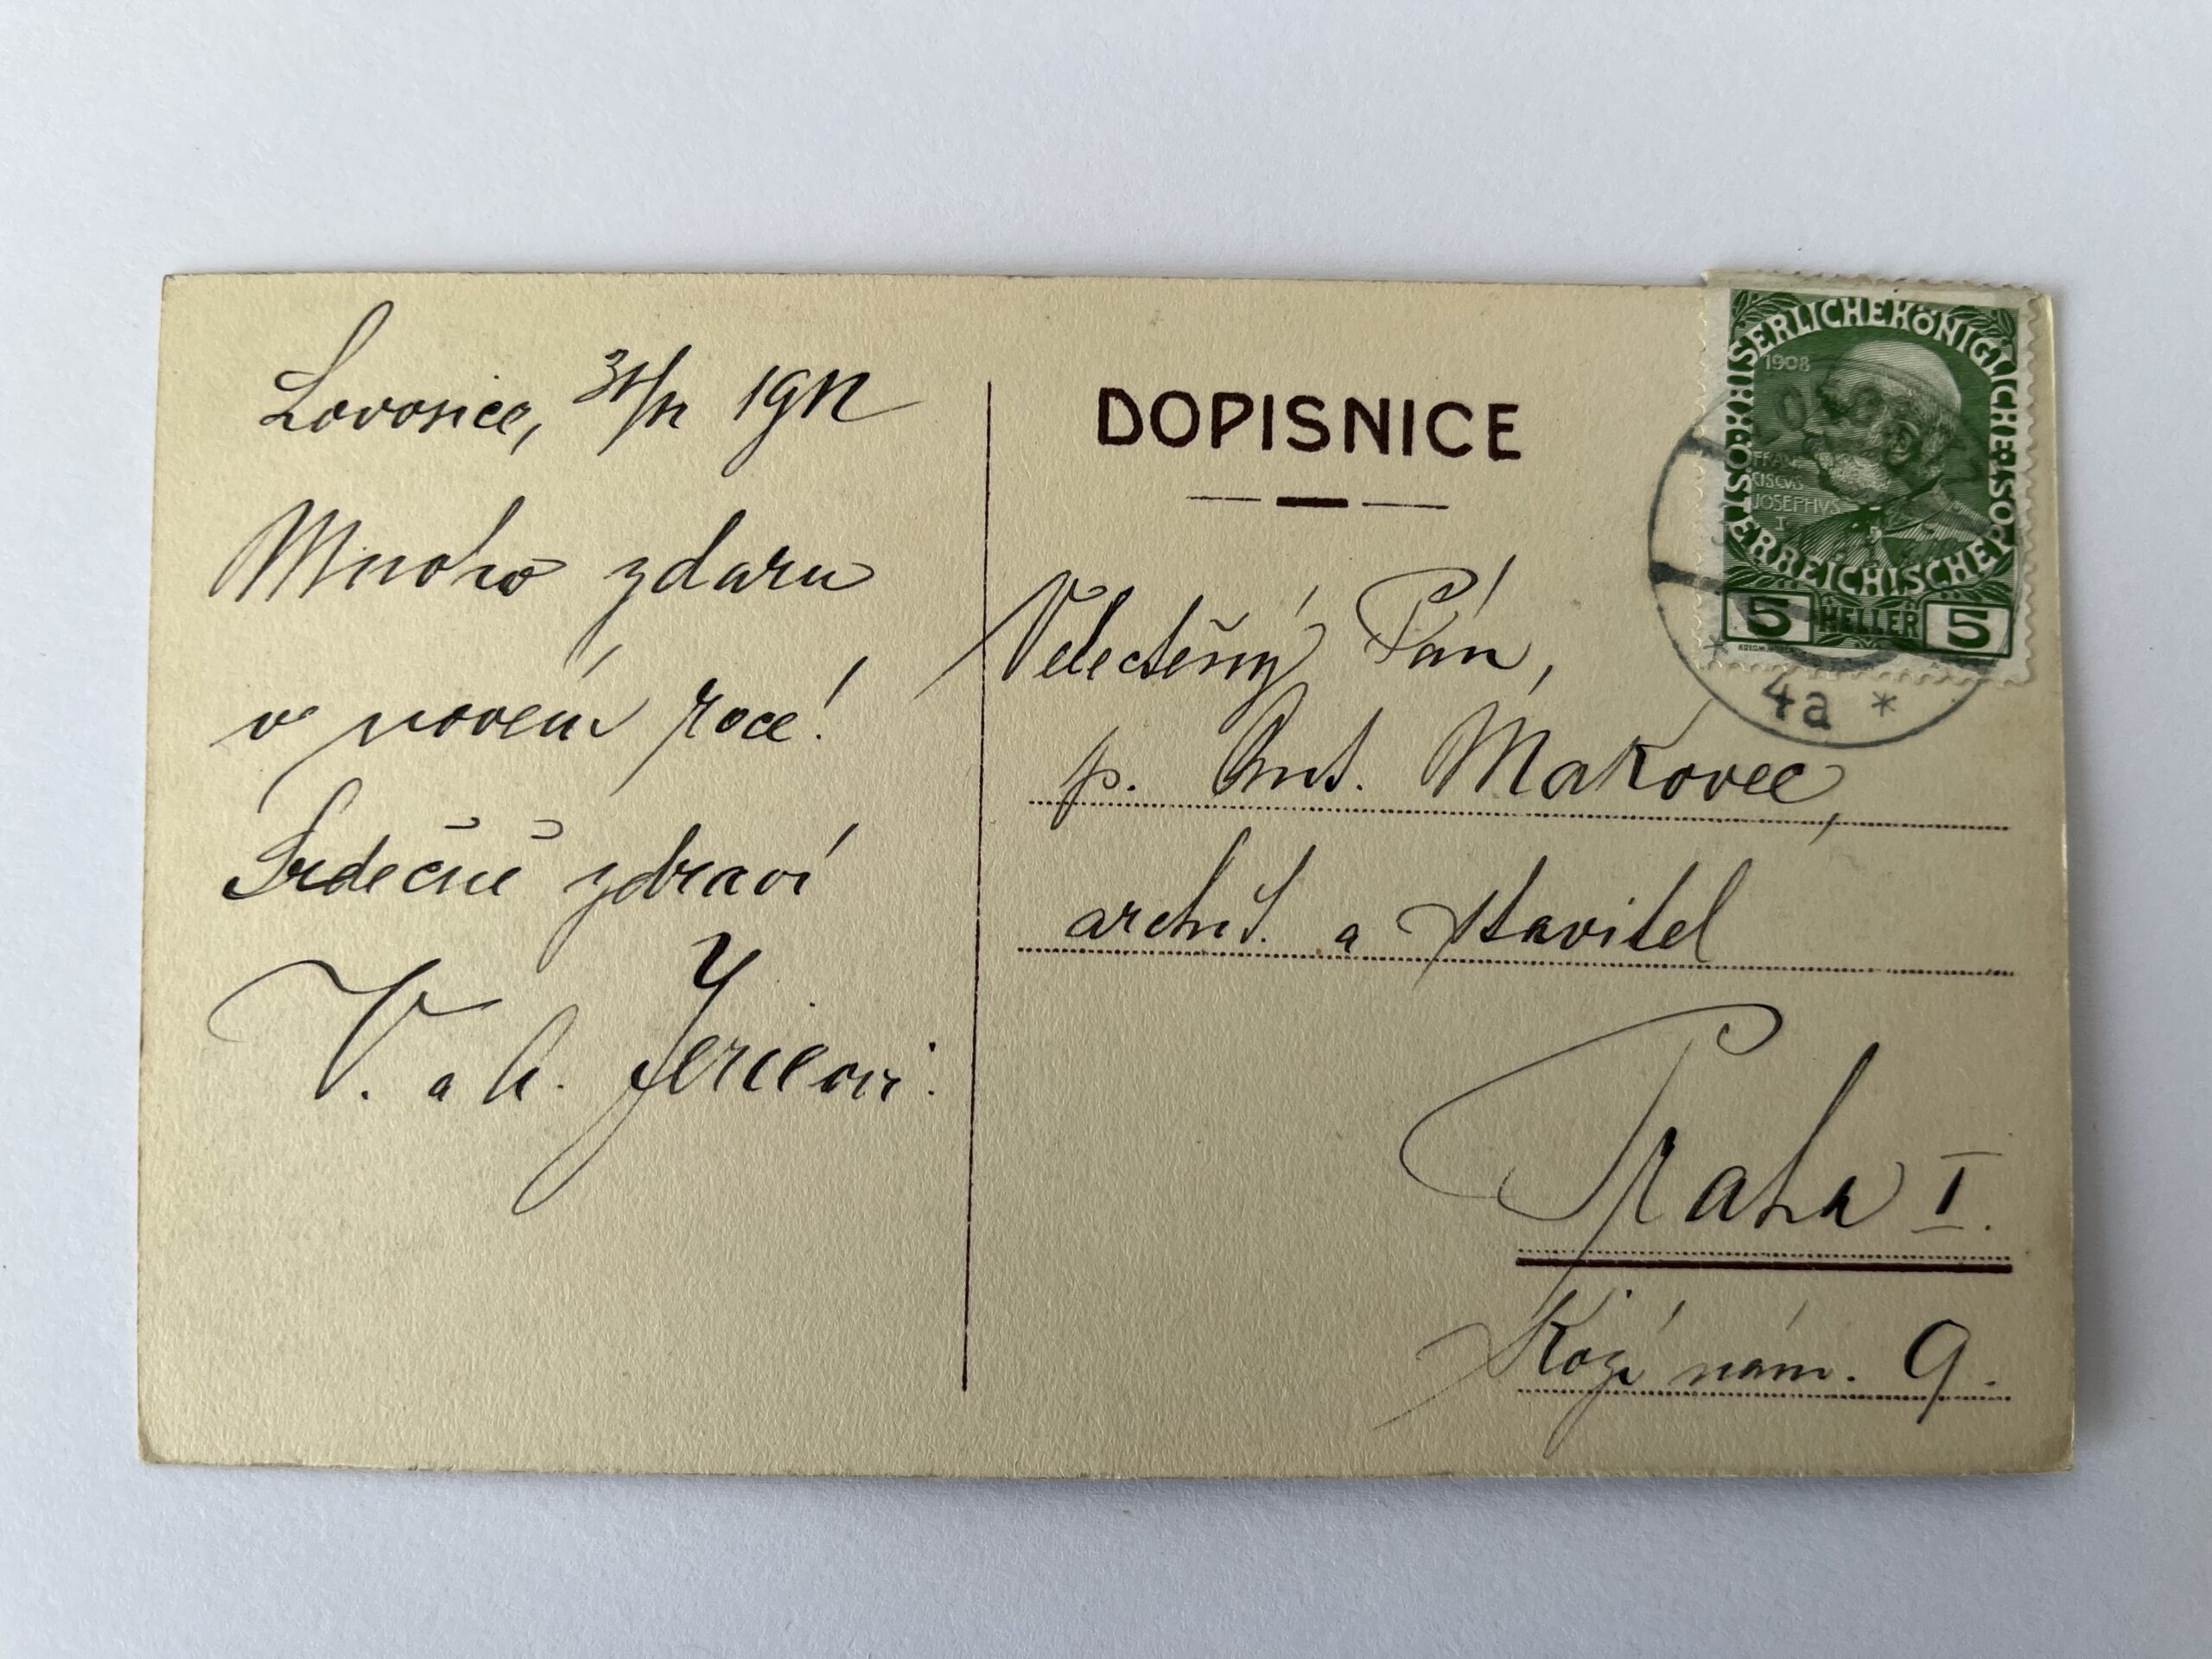 Lovosice, 31/12 1912
Mnoho zdaru
v novém roce!
Srdečně zdraví
V. a A.
DOPISNICE
Velectěný Pán,
p. Ant. Makovec,
archit. a stavitel
Praha I.
Kozí nám. 9.
KAISERLICHE KÖNIGLICHE ÖSTERREICHISCHE POST
1908
FRAN
CISCVS
JOSEPHVS
I
5 HELLER 5
* 4a *